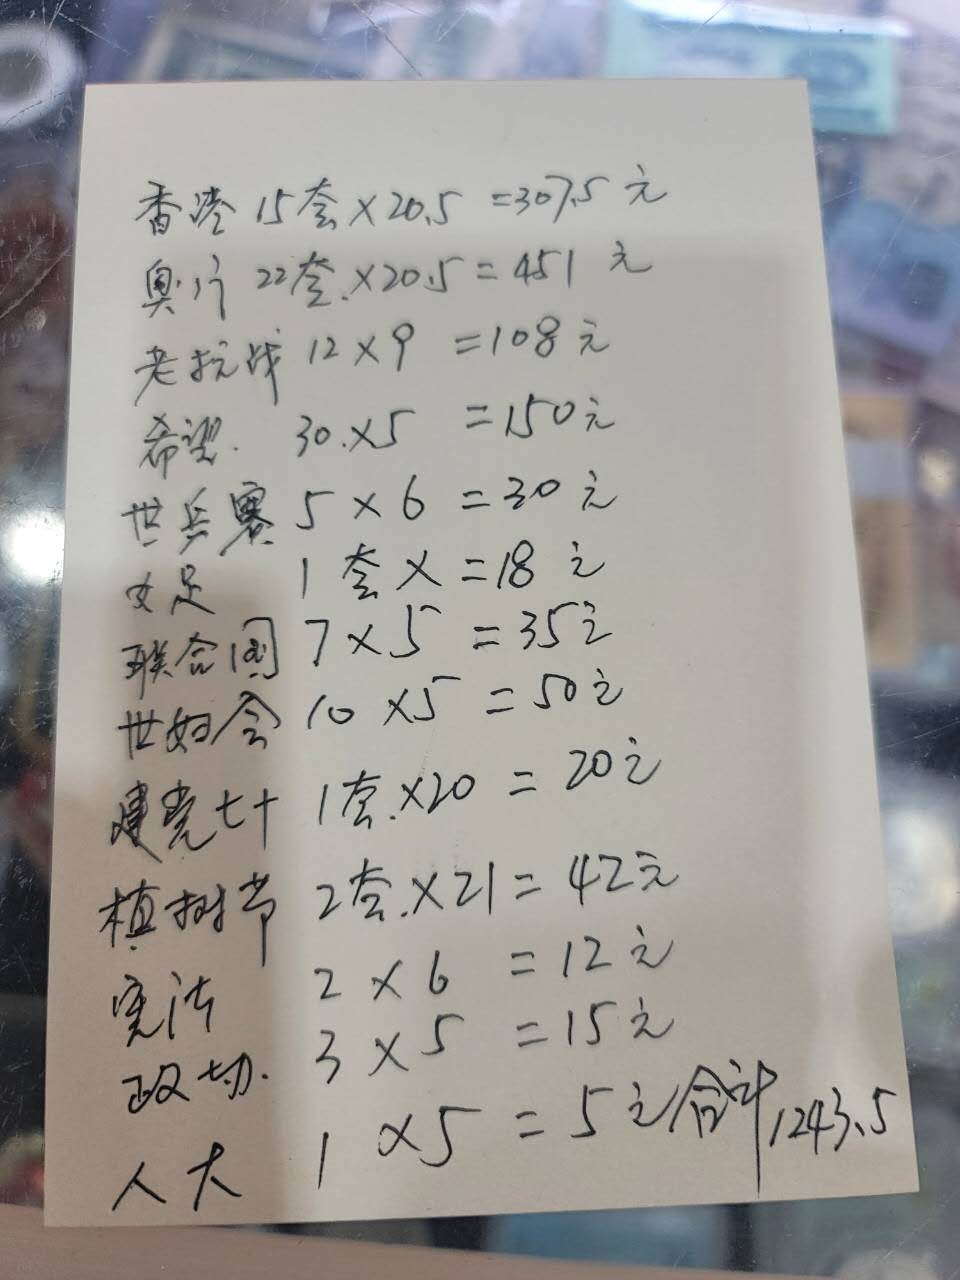 香港 15套×20.5 =307.5 元
奥门 22套.×20.5=451 元
老抗战 12×9 =108元
希望. 30.×5 =150元
世乒赛 5×6 =30元
女足 1套× =18元
联合国 7×5 =35元
世妇会 10×5 =50元
建党七十 1套.×20 = 20元
植树节 2套.×21= 42元
宪法 2×6 =12元
政协. 3×5 =15元
人大 1×5 = 5元合计1243.5